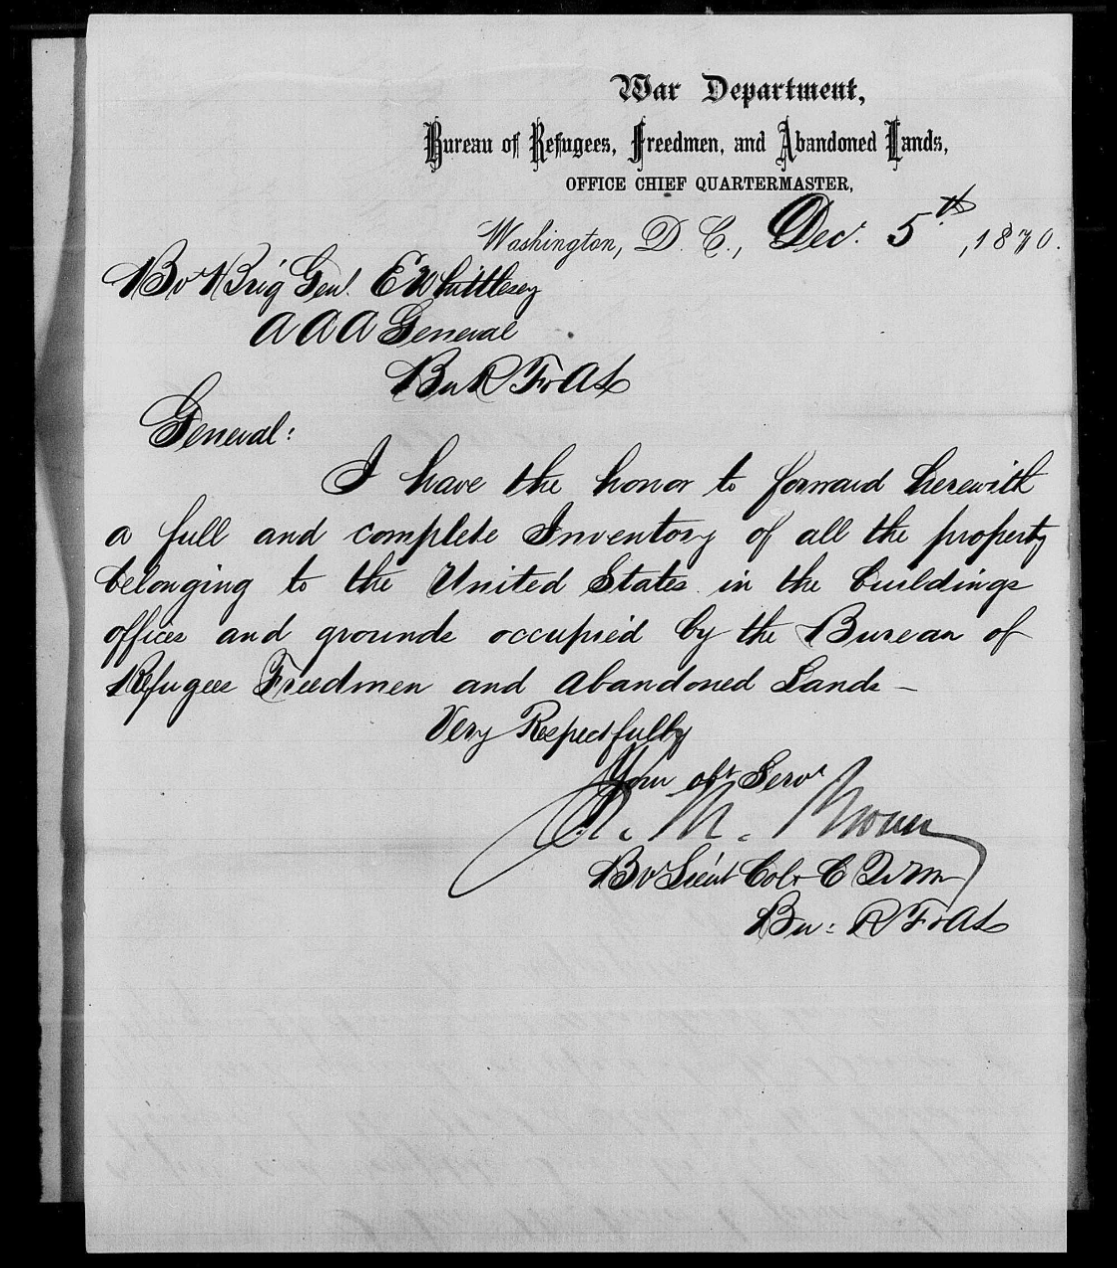 War Department,
Bureau of Refugees, Freedmen, and Abandoned Lands,
OFFICE CHIEF QUARTERMASTER,
Washington, D. C., Dec. 5th, 1870.
Bvt Brig Genl. E Whittlesey
A A A General
Bu R F & A L
General:
I have the honor to forward herewith
a full and complete Inventory of all the property
belonging to the United States in the buildings
offices and grounds occupied by the Bureau of
Refugees Freedmen and Abandoned Lands –
Very Respectfully
Your obt Servt
M.
Bvt Lieut Col & C Q M
Bu: R F & A L